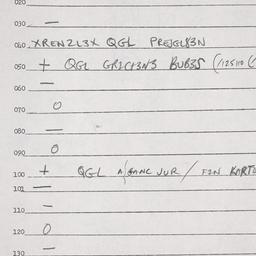 020
030 —
040 XRENZL3X QGL PREJGL83N
050 + QGL GR2C13N3 BUB3S (12510
060 —
070 0
080 —
090 0
100 + QGL JUR / F2N KART
101 —
110 —
120 0
130 —